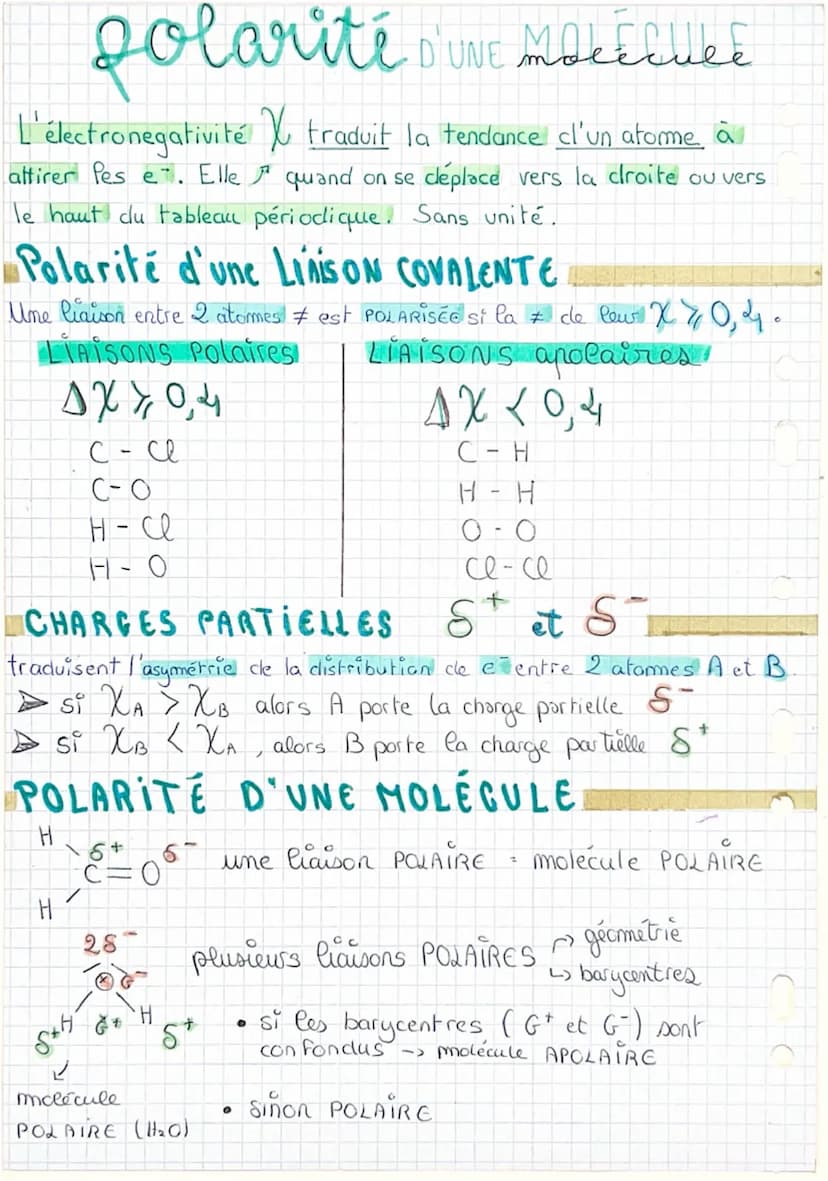 polarité D'UNE MOLÉCULE molécule
L'électronegativité χ traduit la tendance d'un atome à
attirer les e⁻. Elle ↗ quand on se déplace vers la droite ou vers
le haut du tableau périodique. Sans unité.
Polarité d'une LIAISON COVALENTE
Une liaison entre 2 atomes ≠ est POLARISÉE si la ≠ de leur χ ⩾ 0,4.
LIAISONS Polaires
LIAISONS apolaires
Δχ ⩾ 0,4
Δχ < 0,4
C - Cl
C - H
C - O
H - H
H - Cl
O - O
H - O
Cl - Cl
CHARGES PARTIELLES δ⁺ et δ⁻
traduisent l'asymétrie de la distribution de e⁻ entre 2 atomes A et B.
➤ si χA > χB alors A porte la charge partielle δ⁻
➤ si χB < χA, alors B porte la charge partielle δ⁺
POLARITÉ D'UNE MOLÉCULE
H
δ⁺ δ⁻
C=O
H
une liaison POLAIRE = molécule POLAIRE
2δ⁻
G⁻
H G⁺ H
δ⁺ δ⁺
plusieurs liaisons POLAIRES ↱ géométrie
↳ barycentres
• si les barycentres (G⁺ et G⁻) sont
confondus -> molécule APOLAIRE
molécule
POLAIRE (H₂O)
• sinon POLAIRE